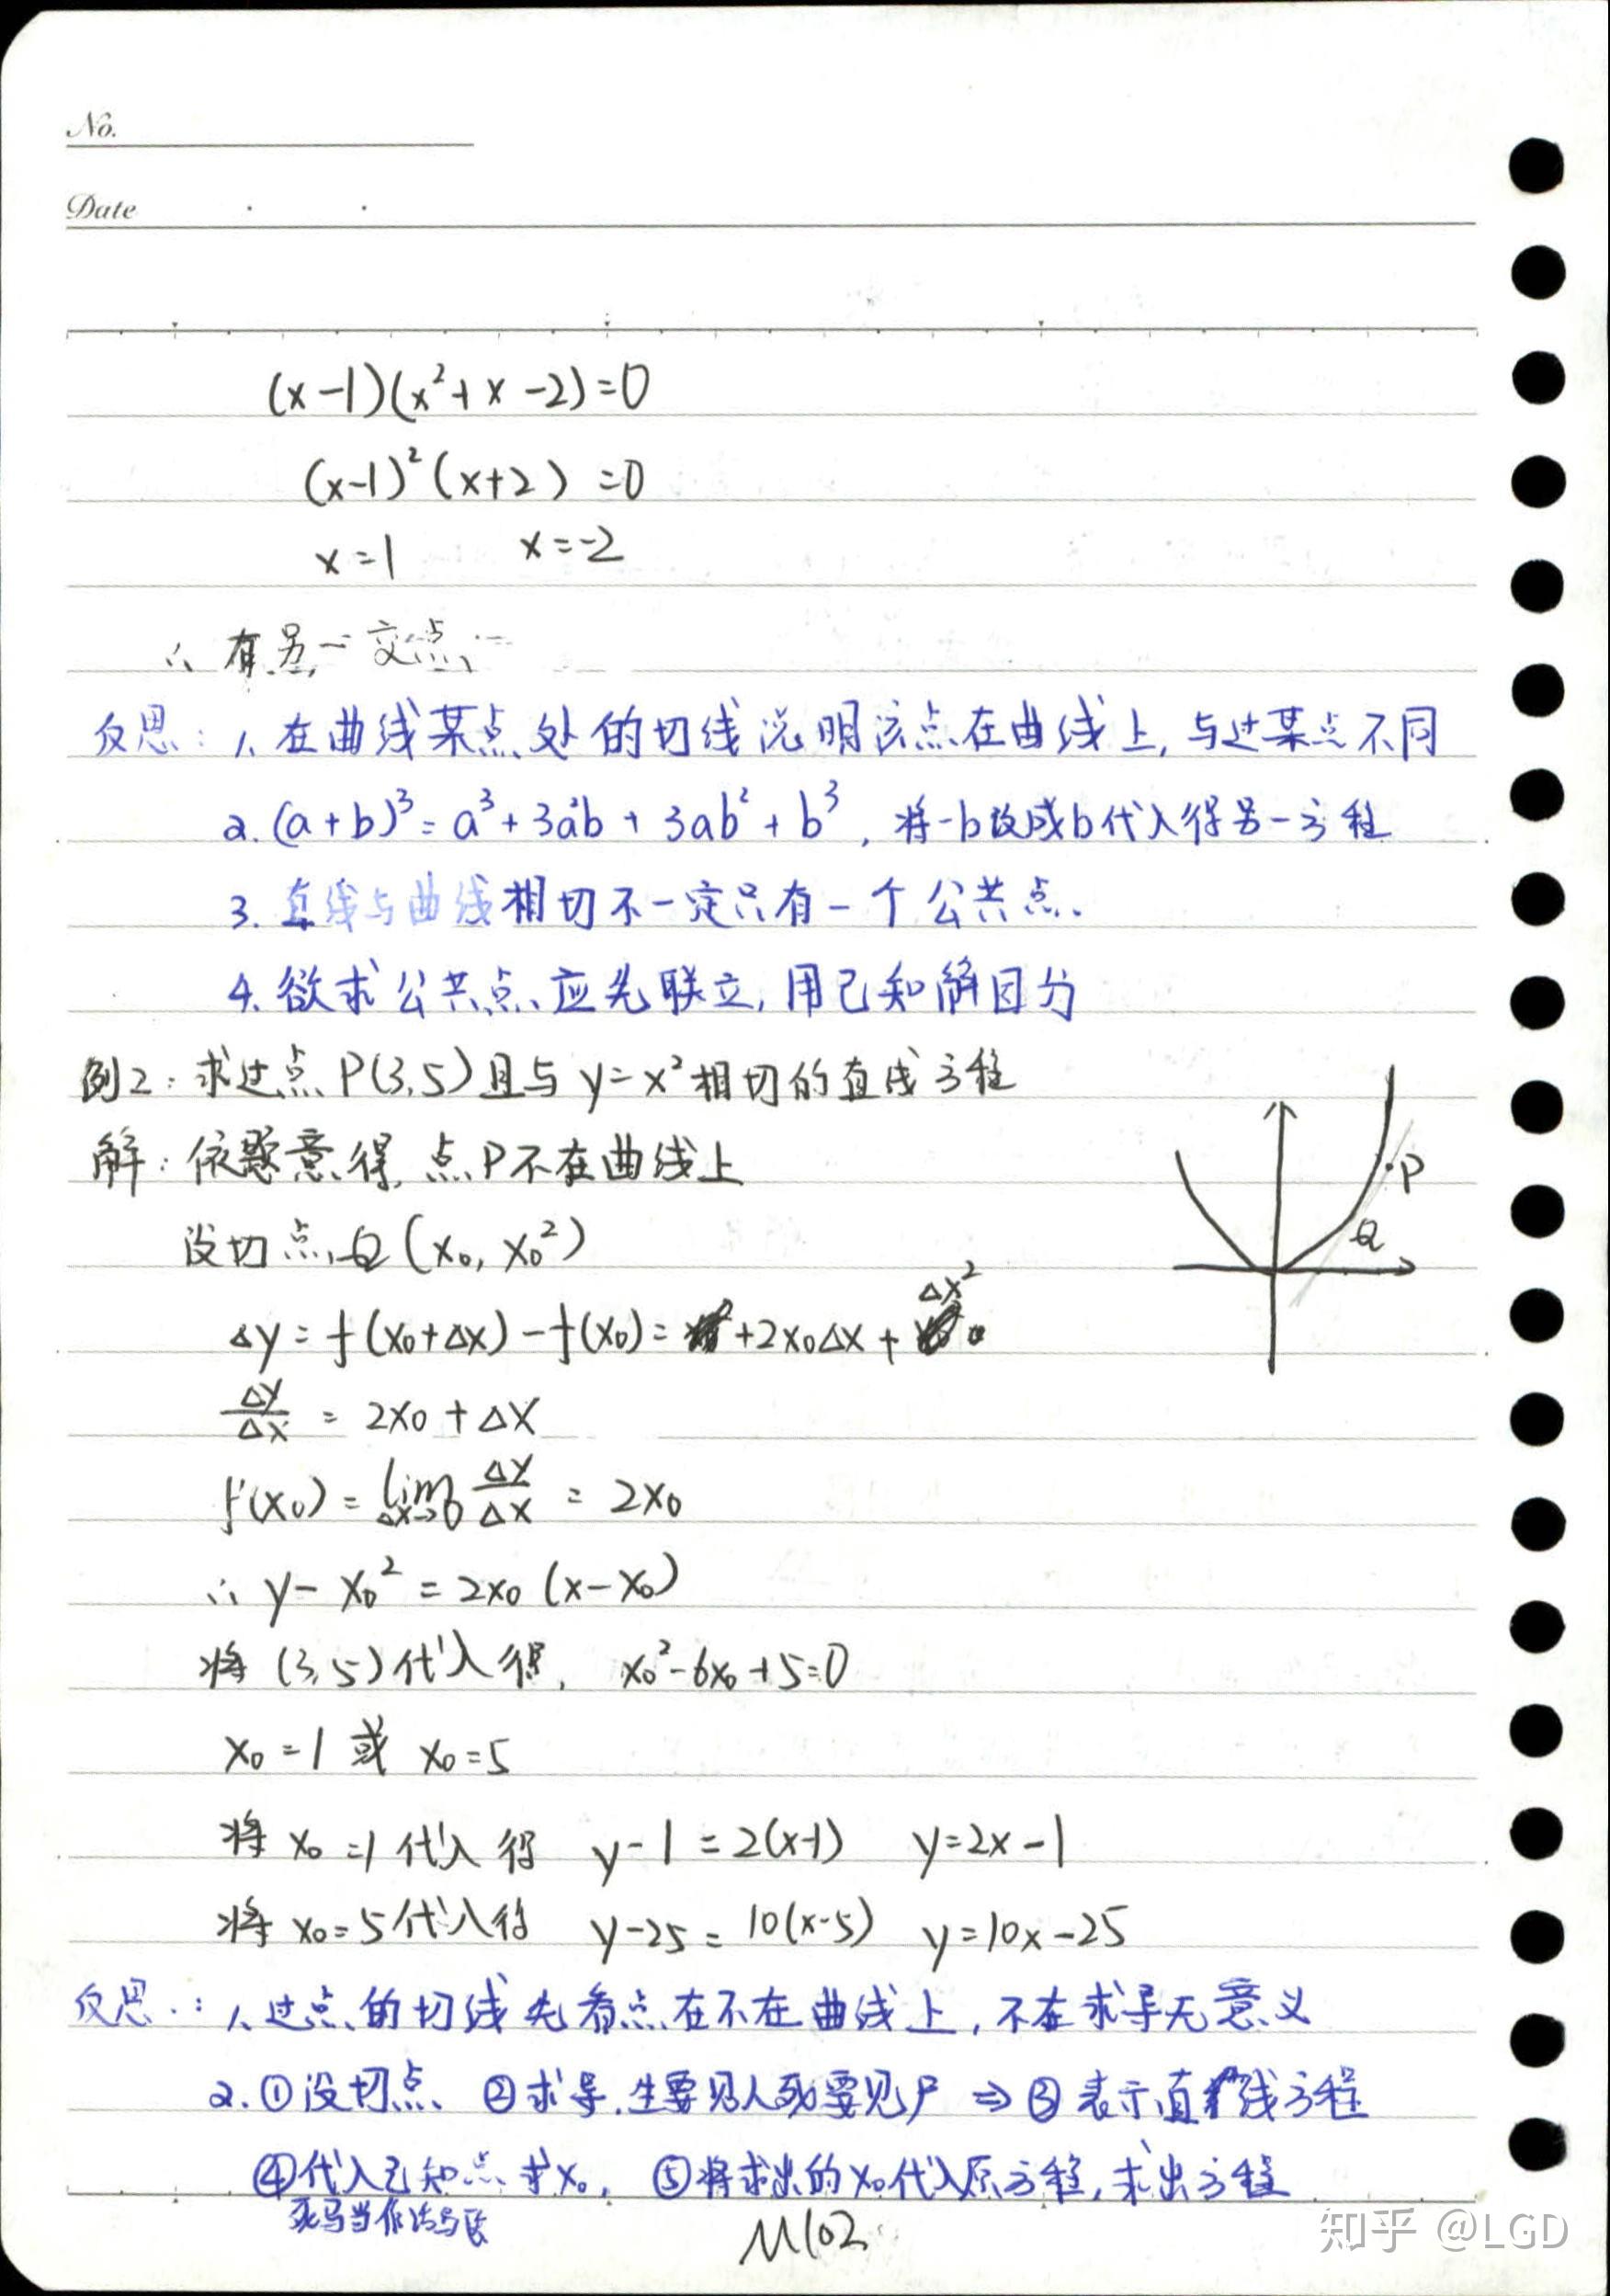 No.
Date
(x-1)(x²+x-2)=0
(x-1)²(x+2)=0
x=1 x=-2
∴有另一交点
反思：1、在曲线某点处的切线说明该点在曲线上，与过某点不同
2.(a+b)³=a³+3a²b+3ab²+b³，将-b改成b代入得另一方程
3.直线与曲线相切不一定只有一个公共点.
4.欲求公共点、应先联立，用已知解因分
例2：求过点P(3,5)且与y=x²相切的直线方程
解：依题意得，点P不在曲线上
设切点Q(x₀,x₀²)
P
Q
Δy=f(x₀+Δx)-f(x₀)= +2x₀Δx+Δx²
Δy/Δx=2x₀+Δx
f'(x₀)=lim Δx→0 Δy/Δx=2x₀
∴y-x₀²=2x₀(x-x₀)
将(3,5)代入得，x₀²-6x₀+5=0
x₀=1或x₀=5
将x₀=1代入得 y-1=2(x-1) y=2x-1
将x₀=5代入得 y-25=10(x-5) y=10x-25
反思：1、过点的切线先看点在不在曲线上，不在求导无意义
2.①设切点、②求导.生要见人死要见尸⇒③表示直线方程
④代入已知点求x₀，⑤将求出的x₀代入原方程，求出方程
死马当作活马医
M102
知乎 @LGD